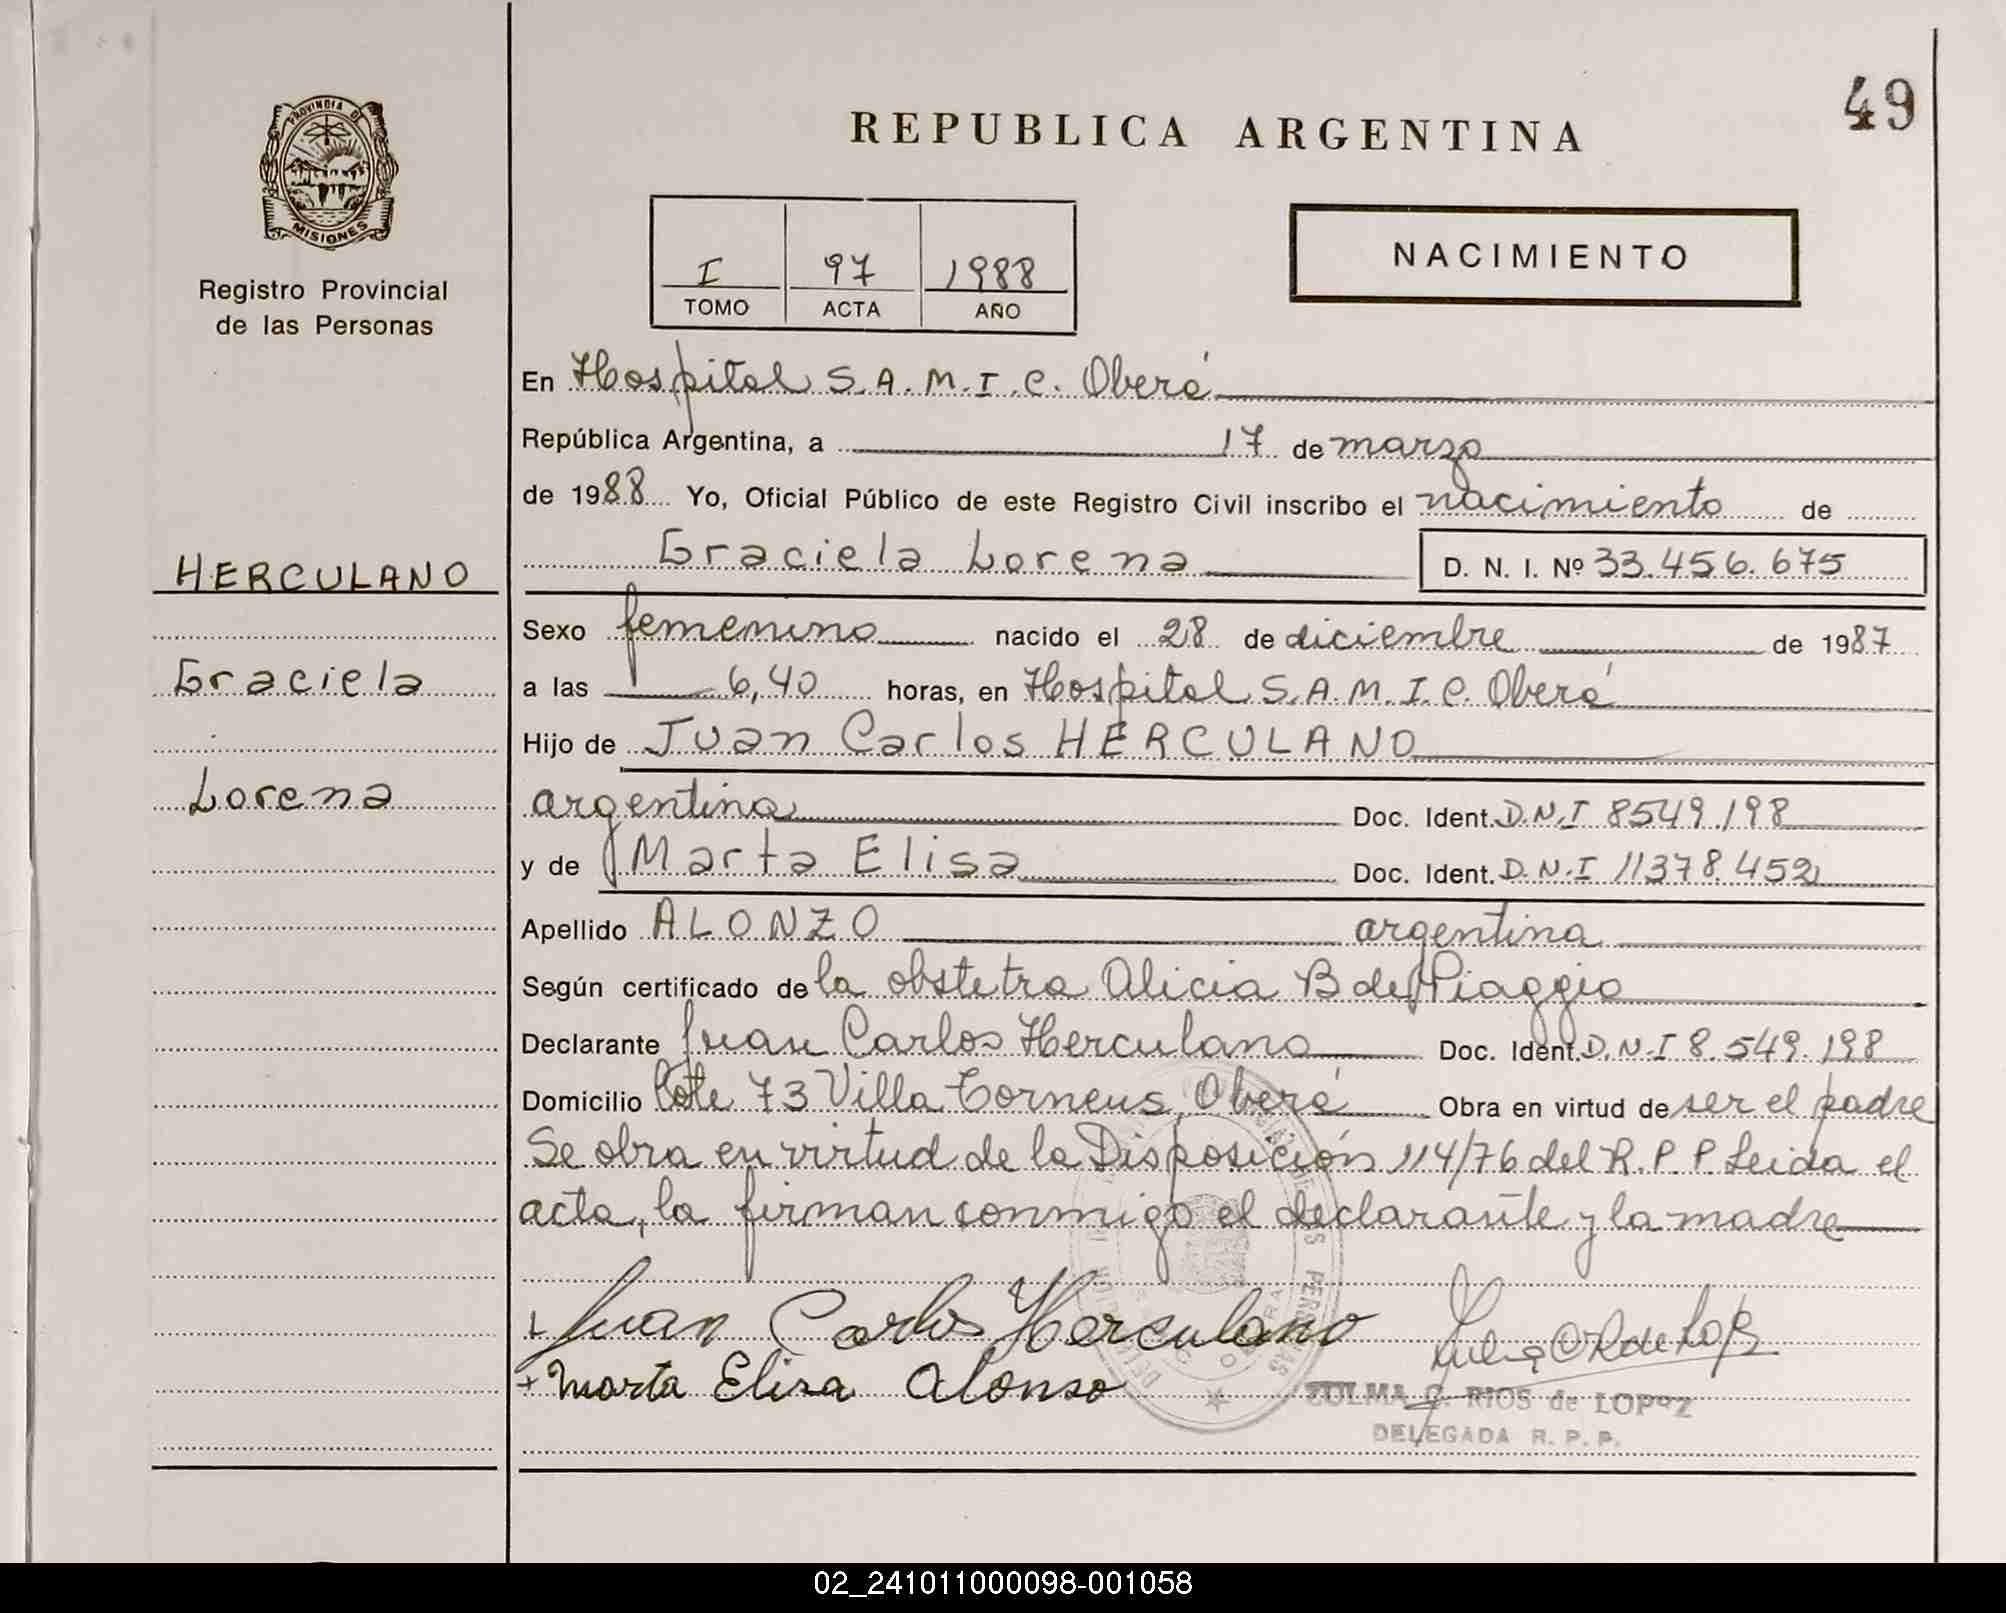 49
PROVINCIA DE
MISIONES
Registro Provincial
de las Personas
REPUBLICA ARGENTINA
NACIMIENTO
I 97 1988
TOMO ACTA AÑO
En Hospital S.A.M.I.C. Oberá
República Argentina, a 17 de marzo
de 1988 Yo, Oficial Público de este Registro Civil inscribo el nacimiento de
Graciela Lorena D. N. I. Nº 33.456.675
HERCULANO
Graciela
Lorena
Sexo femenino nacido el 28 de diciembre de 1987
a las 6,40 horas, en Hospital S.A.M.I.C. Oberá
Hijo de Juan Carlos HERCULANO
argentina Doc. Ident. D.N.I 8549.198
y de Marta Elisa Doc. Ident. D.N.I 11378.452
Apellido ALONZO argentina
Según certificado de la obstetra Alicia B de Piaggio
Declarante Juan Carlos Herculano Doc. Ident. D.N.I 8.549.198
Domicilio Lote 73 Villa Torneus, Oberá Obra en virtud de ser el padre
Se obra en virtud de la Disposición 114/76 del R.P.P. Leida el
acta, la firman conmigo el declarante y la madre
Juan Carlos Herculano
+ Marta Elisa Alonso
ZULMA G. RIOS de LOPEZ
DELEGADA R. P. P.
02_241011000098-001058